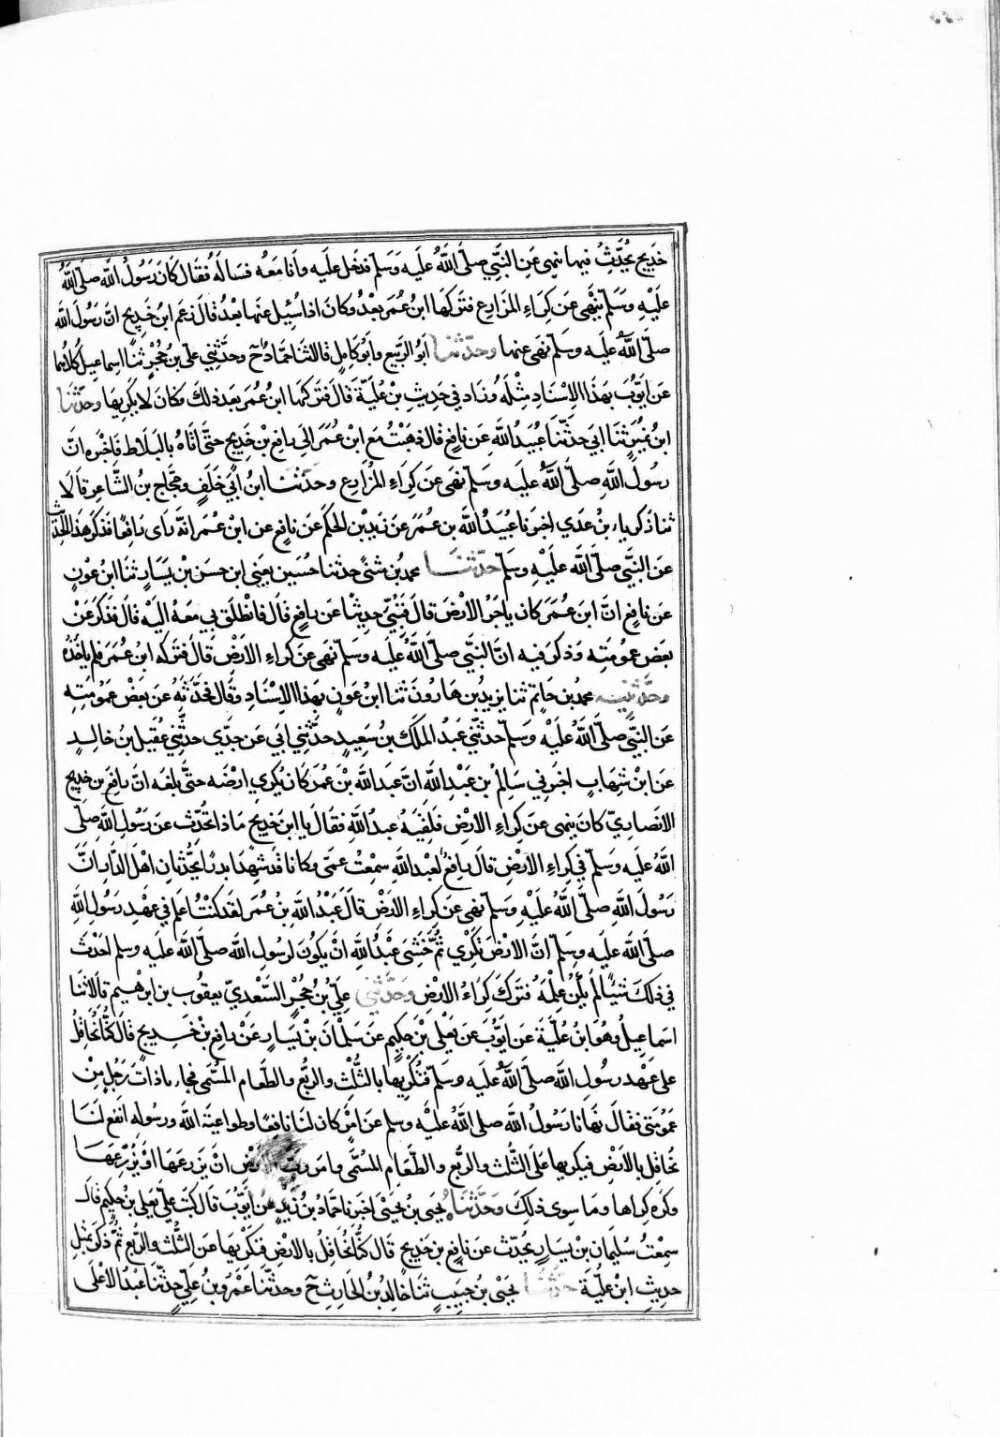 خديج يحدث فيها بنهي عن النبي صلى الله عليه وسلم فدخل عليه وأنا معه فسأله فقال كان رسول الله صلى الله
عليه وسلم ينهى عن كراء المزارع فتركها ابن عمر بعد وكان اذا سئل عنها بعد قال زعم ابن خديج ان رسول الله
صلى الله عليه وسلم نهى عنها وحدثنا ابو الربيع وابو كامل قالا ثنا حماد ح وحدثني علي بن حجر ثنا اسماعيل كلاهما
عن ايوب بهذا الاسناد مثله وزاد في حديث بن علية قال فتركها ابن عمر بعد ذلك وكان لا يكريها وحدثنا
ابن نمير ثنا ابي حدثنا عبيد الله عن نافع قال ذهبت مع ابن عمر الى رافع بن خديج حتى اتاه بالبلاط فاخبره ان
رسول الله صلى الله عليه وسلم نهى عن كراء المزارع وحدثنا ابن ابي خلف وحجاج بن الشاعر قالا
ثنا ذكرياء بن عدي اخبرنا عبيد الله بن عمر عن زيد بن الحكم عن نافع عن ابن عمر انه اتى رافعا فذكر هذا الحديث
عن النبي صلى الله عليه وسلم حدثنا محمد بن مثنى حدثنا حسين يعني ابن حسن بن يسار ثنا ابن عون
عن نافع ان ابن عمر كان ياجر الارض قال فنبئ حديثا عن رافع قال فانطلق بي معه اليه قال فذكر عن
بعض عمومته وذكر فيه ان النبي صلى الله عليه وسلم نهى عن كراء الارض قال فتركه ابن عمر فلم ياخذه
وحدثنيه محمد بن حاتم ثنا يزيد بن هارون ثنا ابن عون بهذا الاسناد وقال فحدثه عن بعض عمومته
عن النبي صلى الله عليه وسلم حدثني عبد الملك بن سعيد حدثني ابي عن جدي حدثني عقيل بن خالد
عن ابن شهاب اخبرني سالم بن عبد الله ان عبد الله بن عمر كان يكري ارضه حتى بلغه ان رافع بن خديج
الانصاري كان ينهى عن كراء الارض فلقيه عبد الله فقال يا ابن خديج ماذا تحدث عن رسول الله صلى
الله عليه وسلم في كراء الارض قال رافع لعبد الله سمعت عمي وكانا قد شهدا بدرا يحدثان اهل الدار ان
رسول الله صلى الله عليه وسلم نهى عن كراء الارض قال عبد الله بن عمر لقد كنت اعلم في عهد رسول الله
صلى الله عليه وسلم ان الارض تكرى ثم خشي عبد الله ان يكون لرسول الله صلى الله عليه وسلم احدث
في ذلك شيئا لم يكن علمه فترك كراء الارض وحدثني علي بن حجر السعدي يعقوب بن ابرهيم قالا ثنا
اسماعيل وهو ابن علية عن ايوب عن يعلى بن حكيم عن سليمان بن يسار عن رافع بن خديج قال كنا نحاقل
على عهد رسول الله صلى الله عليه وسلم فنكريها بالثلث والربع والطعام المسمى فجاء ناذات رجل من
عمومتي فقال نهانا رسول الله صلى الله عليه وسلم عن امر كان لنا نافعا وطواعية الله ورسوله انفع لنا
نحاقل بالارض فيكريها على الثلث والربع والطعام المسمى وامر رب الارض ان يزرعها او يزرعها
وكره كراها وما سوى ذلك وحدثناه يحيى بن يحيى اخبرنا حماد بن زيد عن ايوب قال كتب على يعلى بن حكيم قال
سمعت سليمان بن يسار يحدث عن رافع بن خديج قال كنا نحاقل بالارض فنكريها عن الثلث والربع ثم ذكر بمثل
حديث ابن علية حدثنا يحيى بن حبيب ثنا خالد بن الحارث ح وحدثنا عمرو بن علي حدثنا عبد الاعلى